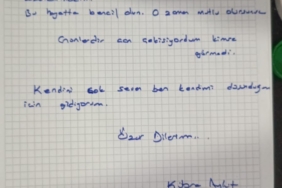 Bu hayatta bencil olun. O zaman mutlu olursunuz
can çekişiyordum kimse
görmedi.
Kendini çok seven ben kendimi
için gidiyorum.
Özür Dilerim..
Kübra